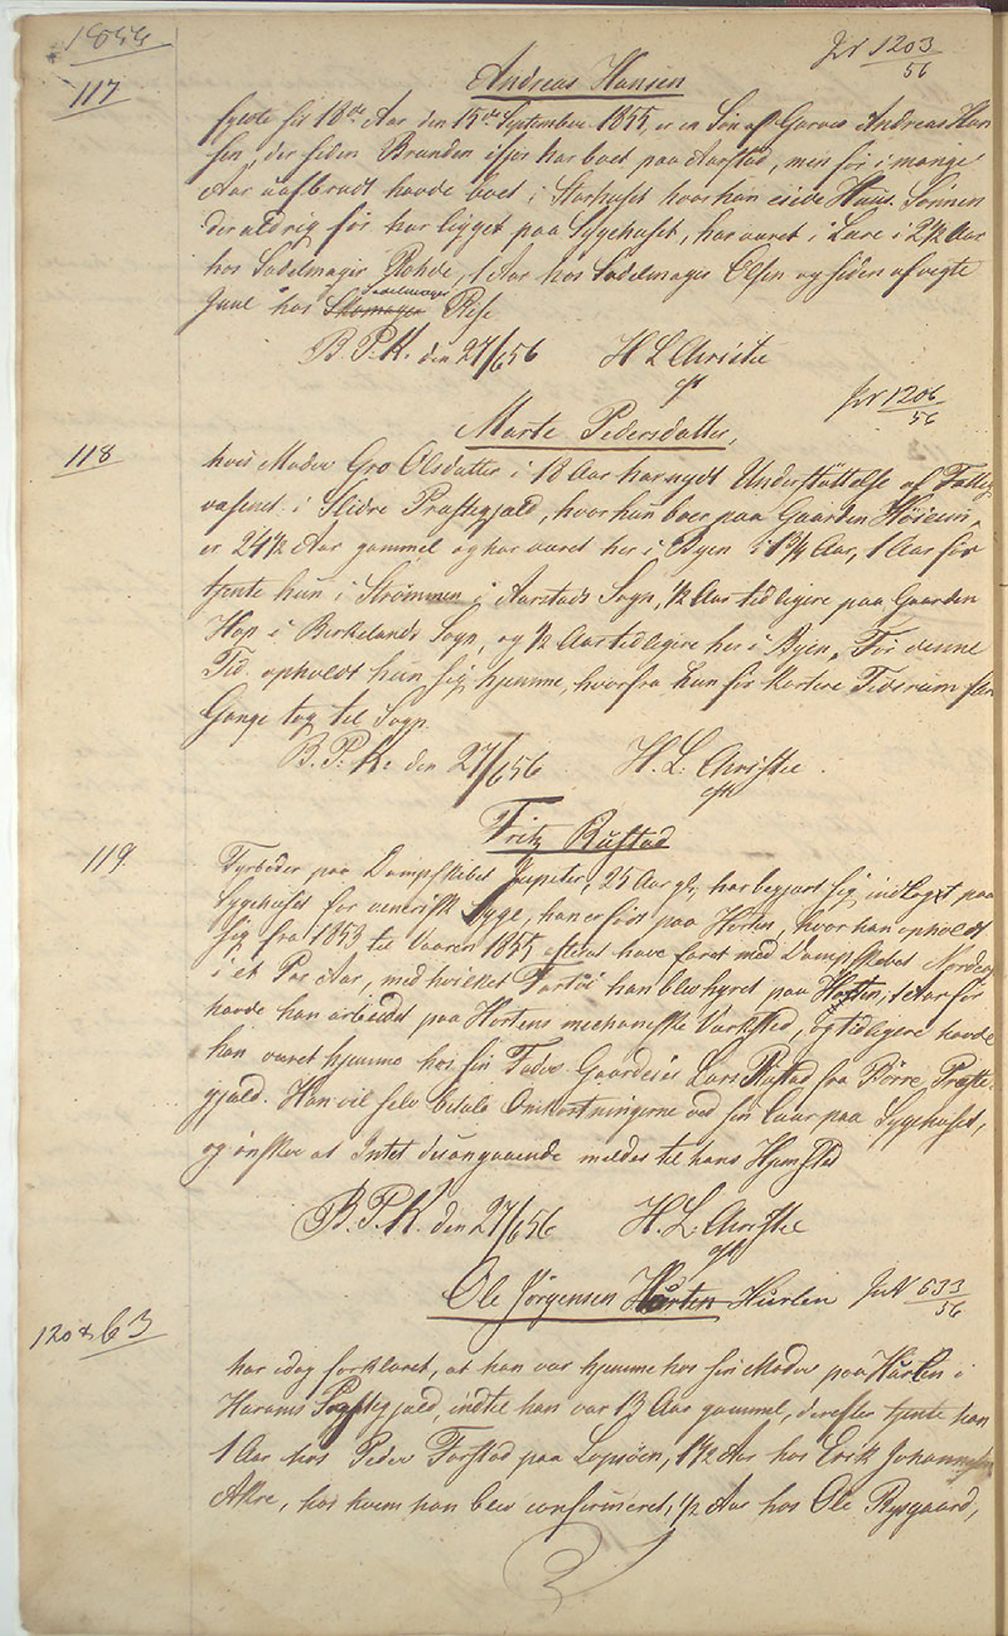 1856
JN 1203/56
117
Andreas Hansen
fyldte sit 18de Aar den 15de September 1855, er en Søn af Garver Andreas Han
sen, der siden Branden ifjor har boet paa Aarstad, men før i mange
Aar uafbrudt havde boet i hvor han eiede Huus. Sønnen
der aldrig før har ligget paa Sygehuset, har været i Lære i 2 1/2 Aar
hos Sadelmager Rohde, 1 Aar hos Sadelmager Olsen og siden afvigte
Juul hos Skomager Sadelmager
B. P. K. den 27/6 56 H L Christie
cst
JN 1206/56
118
Marte Pedersdatter,
hvis Moder Gro Olsdatter i 18 Aar har nydt Understøttelse af Fattig
væsenet i Slidre Præstegjæld, hvor hun boer paa Gaarden
er 24 1/2 Aar gammel og har været her i Byen i 1 3/4 Aar, 1 Aar før
tjente hun i Strømmen i Aarstads Sogn, 1/2 Aar tidligere paa Gaarden
Hop i Birkelands Sogn, og 1/2 Aar tidligere her i Byen. Før denne
Tid opholdt hun sig hjemme, hvorfra hun for kortere Tidsrum flere
Gange tog til Sogn.
B. P. K. den 27/6 56 H. L. Christie
cst
119
Fritz Rustad
Fyrbøder paa Dampskibet Jupiter, 25 Aar gl, har begjært sig indlagt paa
Sygehuset for venerisk Syge, han er født paa Horten, hvor han opholdt
sig fra 1853 til Vaaren 1855 efterat have faret med Dampskibet
i et Par Aar, med hvilket Fartøi han blev hyret paa Horten, 1 Aar før
havde han arbeidet paa Hortens mechaniske Værksted, og tidligere havde
han været hjemme hos sin Fader Gaardeier Lars Rustad fra Børre Præste-
gjæld. Han vil selv betale Omkostningerne ved sin Cuur paa Sygehuset,
og ønsker at Intet desangaaende meldes til hans Hjemsted
B. P. K. den 27/6 56 H. L. Christie
cst
Ole Jørgensen Hurlen JN 633/56
120 & 63
har idag forklaret, at han var hjemme hos sin Moder paa Hurlen i
Harams Præstegjæld, indtil han var 13 Aar gammel, derefter tjente han
1 Aar hos Peder Farstad paa Lepsøen, 1 1/2 Aar hos Erik Johannesen
Akre, hos hvem han blev confirmeret, 1/2 Aar hos Ole Rysgaard,